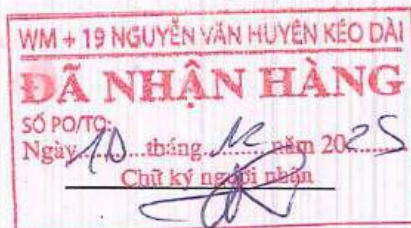 WM + 19 NGUYỄN VĂN HUYÊN KÉO DÀI
ĐÃ NHẬN HÀNG
SỐ PO/TO:
Ngày 10 tháng 12 năm 2025
Chữ ký người nhận